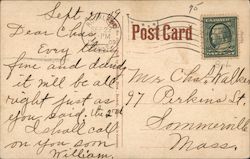 Sept 21 09
Dear Chas,
Evry thing
fine and dandy
it will be all
right just as
you said, the 2nd
I shall call
on you soon
William.
Post Card
Mr Chas. Walker
97 Perkins St
Sommerville
Mass.